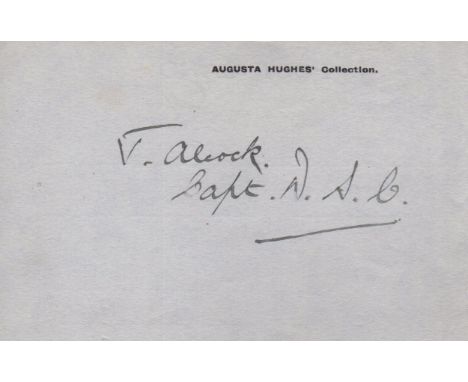 AUGUSTA HUGHES' Collection.
J. Alcock.
Capt. D. S. C.